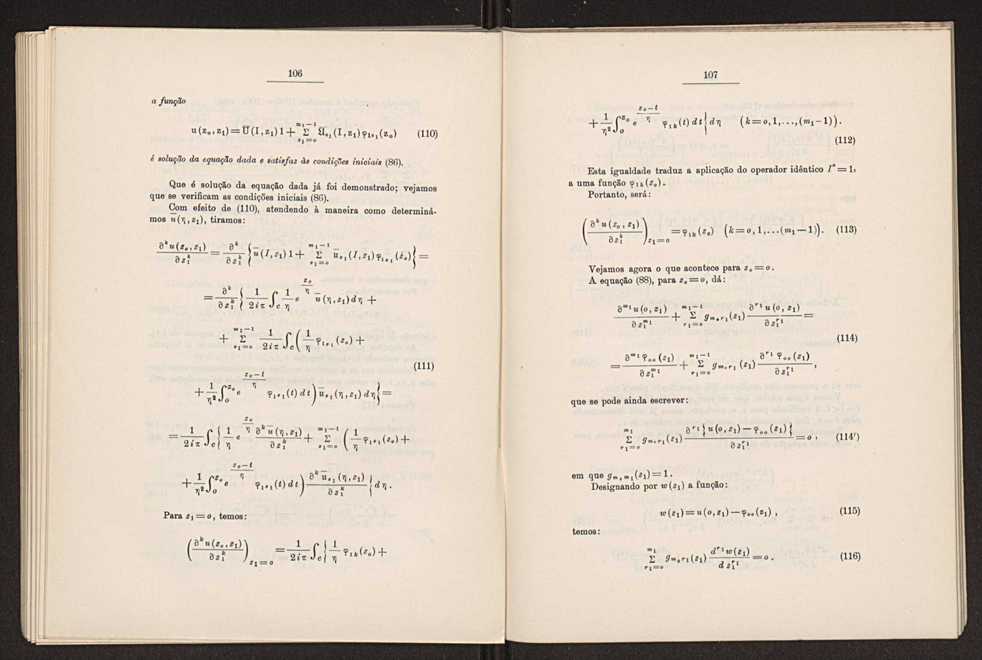 106
a função
u(z₀,z₁) = U̅(I,z₁)1 + Σ_{s₁=o}^{m₁−1} U̅_{s₁}(I,z₁)φ_{1s₁}(z₀) (110)
é solução da equação dada e satisfaz às condições iniciais (86).
Que é solução da equação dada já foi demonstrado; vejamos
que se verificam as condições iniciais (86).
Com efeito de (110), atendendo à maneira como determiná-
mos u̅(η,z₁), tiramos:
∂ᵏu(z₀,z₁)/∂z₁ᵏ = ∂ᵏ/∂z₁ᵏ { u̅(I,z₁)1 + Σ_{s₁=o}^{m₁−1} u̅_{s₁}(I,z₁)φ_{1s₁}(z₀) } =
= ∂ᵏ/∂z₁ᵏ { 1/2iπ ∫_C 1/η e^{z₀/η} u̅(η,z₁) dη +
+ Σ_{s₁=o}^{m₁−1} 1/2iπ ∫_C ( 1/η φ_{1s₁}(z₀) +
(111)
+ 1/η² ∫_o^{z₀} e^{(z₀−t)/η} φ_{1s₁}(t) dt ) u̅_{s₁}(η,z₁) dη } =
= 1/2iπ ∫_C { 1/η e^{z₀/η} ∂ᵏu̅(η,z₁)/∂z₁ᵏ + Σ_{s₁=o}^{m₁−1} ( 1/η φ_{1s₁}(z₀) +
+ 1/η² ∫_o^{z₀} e^{(z₀−t)/η} φ_{1s₁}(t) dt ) ∂ᵏu̅_{s₁}(η,z₁)/∂z₁ᵏ } dη .
Para z₁ = o, temos:
( ∂ᵏu(z₀,z₁)/∂z₁ᵏ )_{z₁=o} = 1/2iπ ∫_C { 1/η φ_{1k}(z₀) +
107
+ 1/η² ∫_o^{z₀} e^{(z₀−t)/η} φ_{1k}(t) dt } dη (k = o, 1, ..., (m₁−1)).
(112)
Esta igualdade traduz a aplicação do operador idêntico I* = 1,
a uma função φ_{1k}(z₀).
Portanto, será:
( ∂ᵏu(z₀,z₁)/∂z₁ᵏ )_{z₁=o} = φ_{1k}(z₀) (k = o, 1, ... (m₁−1)). (113)
Vejamos agora o que acontece para z₀ = o.
A equação (88), para z₀ = o, dá:
∂^{m₁}u(o,z₁)/∂z₁^{m₁} + Σ_{r₁=o}^{m₁−1} g_{m₀r₁}(z₁) ∂^{r₁}u(o,z₁)/∂z₁^{r₁} =
(114)
= ∂^{m₁}φ_{oo}(z₁)/∂z₁^{m₁} + Σ_{r₁=o}^{m₁−1} g_{m₀r₁}(z₁) ∂^{r₁}φ_{oo}(z₁)/∂z₁^{r₁} ,
que se pode ainda escrever:
Σ_{r₁=o}^{m₁} g_{m₀r₁}(z₁) ∂^{r₁}{ u(o,z₁) − φ_{oo}(z₁) }/∂z₁^{r₁} = o , (114′)
em que g_{m₀m₁}(z₁) = 1.
Designando por w(z₁) a função:
w(z₁) = u(o,z₁) − φ_{oo}(z₁) , (115)
temos:
Σ_{r₁=o}^{m₁} g_{m₀r₁}(z₁) d^{r₁}w(z₁)/dz₁^{r₁} = o . (116)